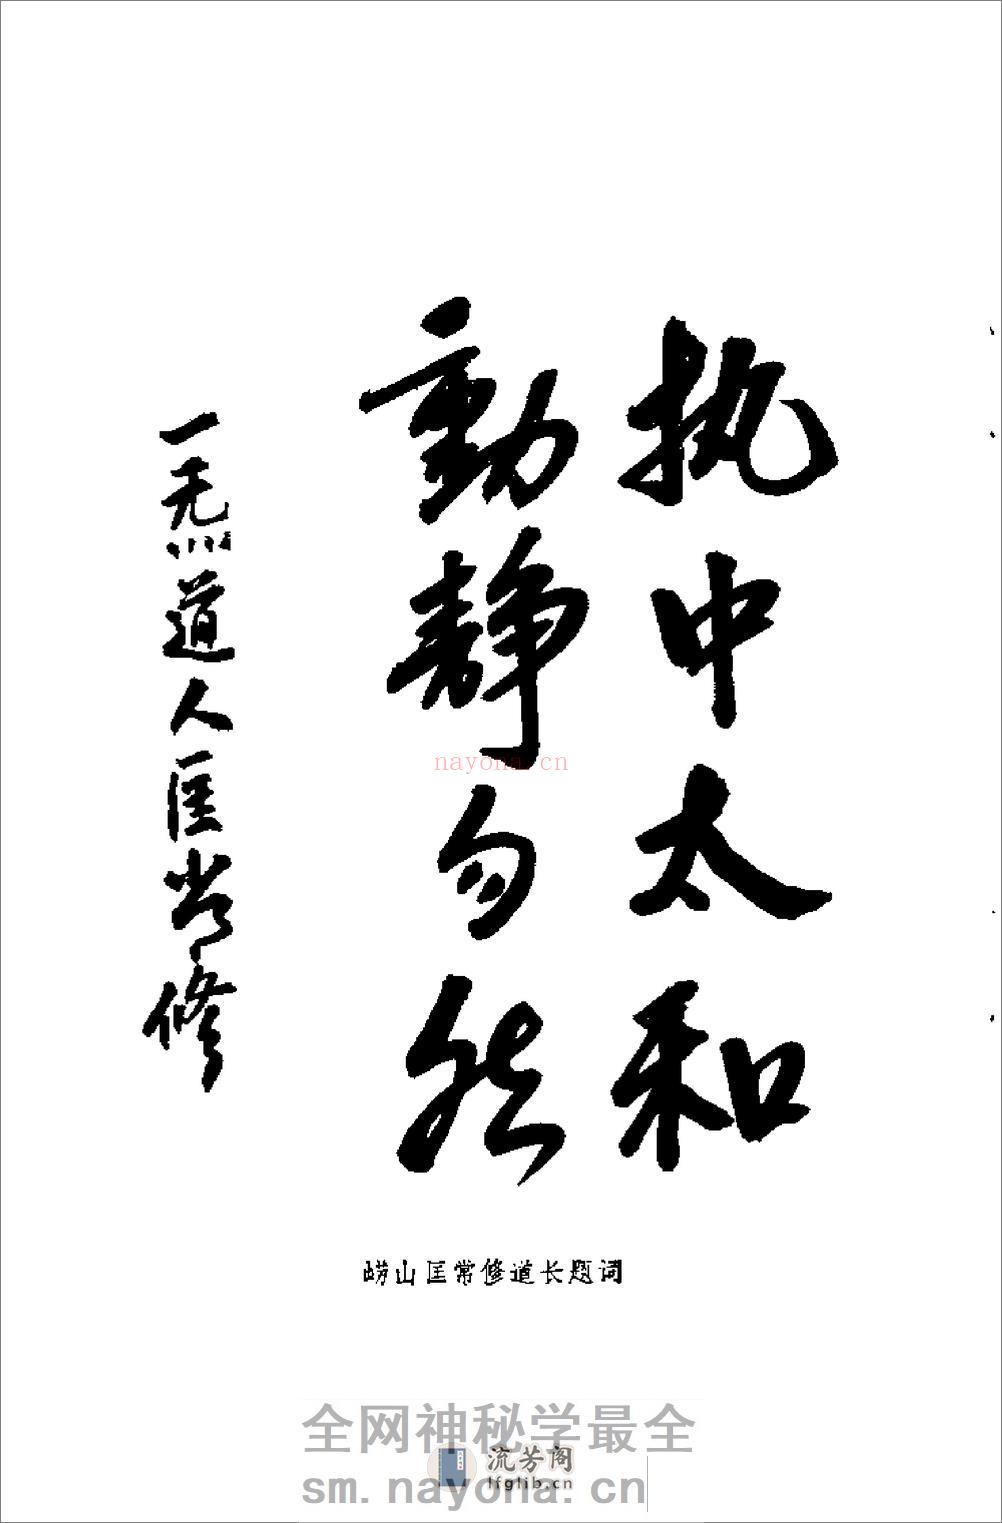 执中太和
動静勿然
一炁道人匡常修
nayona.cn
崂山匡常修道长题词
全网神秘学最全
流芳阁
lfglib.cn
sm.nayona.cn